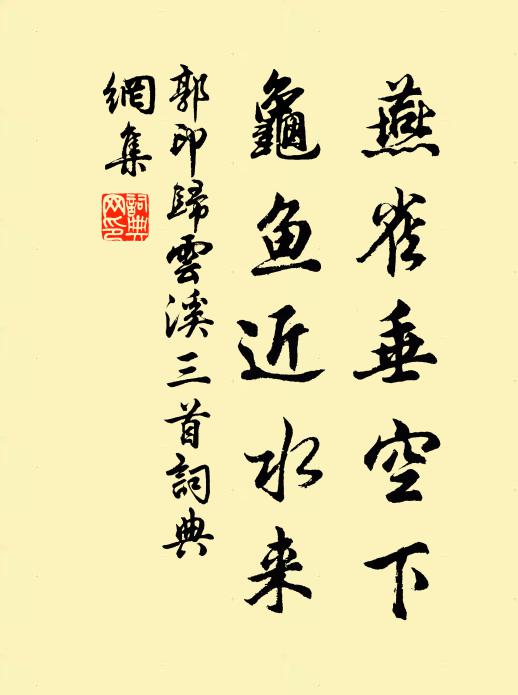 燕雀垂空下
龜鱼近水来
郭印歸雲溪三首詞典
網集
詞典
网印